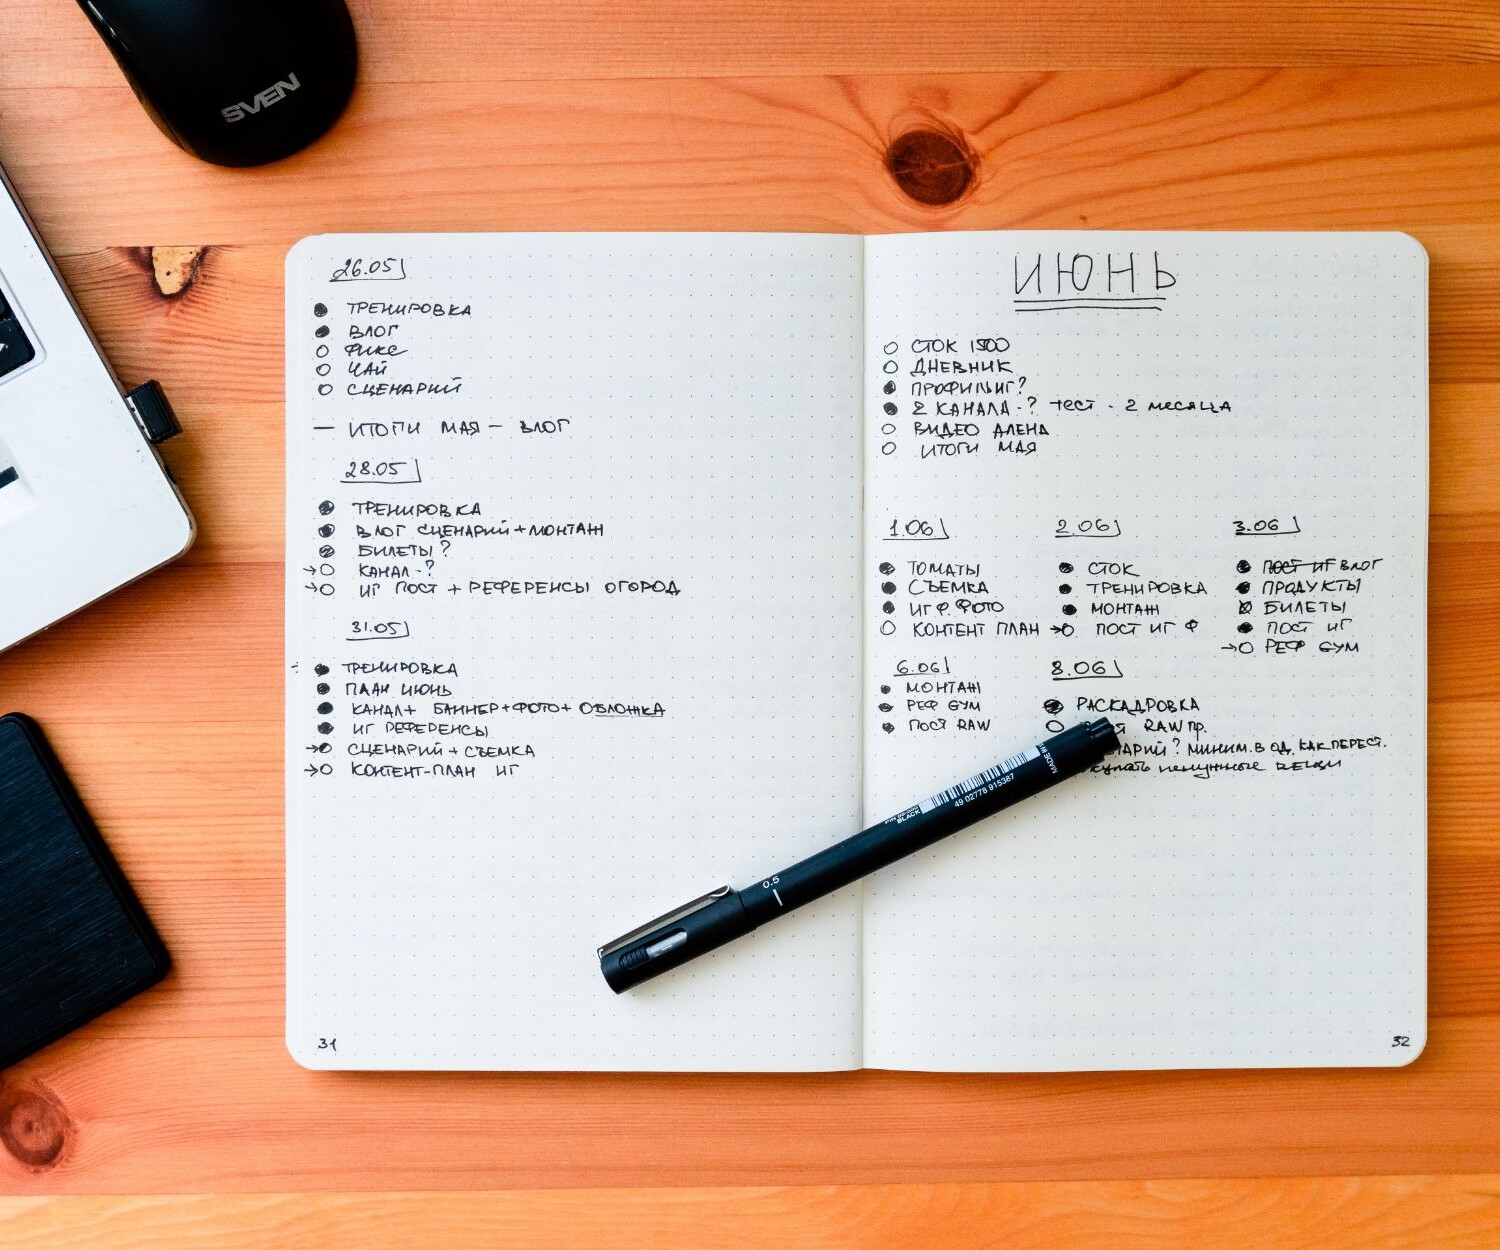 SVEN
26.05
ТРЕНИРОВКА
ВЛОГ
ФИКС
ЧАЙ
СЦЕНАРИЙ
— ИТОГИ МАЯ — ВЛОГ
28.05
ТРЕНИРОВКА
ВЛОГ СЦЕНАРИЙ + МОНТАЖ
БИЛЕТЫ?
→ КАНАЛ-?
→ ИГ ПОСТ + РЕФЕРЕНСЫ ОГОРОД
31.05
ТРЕНИРОВКА
ПЛАН ИЮНЬ
КАНАЛ + БАННЕР + ФОТО + ОБЛОЖКА
ИГ РЕФЕРЕНСЫ
→ СЦЕНАРИЙ + СЪЕМКА
→ КОНТЕНТ-ПЛАН ИГ
31
ИЮНЬ
СТОК 1500
ДНЕВНИК
ПРОФИЛЬ ИГ?
2 КАНАЛА-? тест - 2 месяца
ВИДЕО АЛЕНА
ИТОГИ МАЯ
1.06
ТОМАТЫ
СЪЕМКА
ИГ Ф. ФОТО
КОНТЕНТ ПЛАН
2.06
СТОК
ТРЕНИРОВКА
МОНТАЖ
→ ПОСТ ИГ Ф
3.06
ПОСТ ИГ ВЛОГ
ПРОДУКТЫ
БИЛЕТЫ
ПОСТ ИГ
→ РЕФ GYM
6.06
МОНТАЖ
РЕФ GYM
ПОСТ RAW
8.06
РАСКАДРОВКА
RAW ПР.
? МИНИМ. В ОД. КАК ПЕРЕСТ.
ненужные вещи
32
MADE IN
49 02778 915387
BLACK
0.5